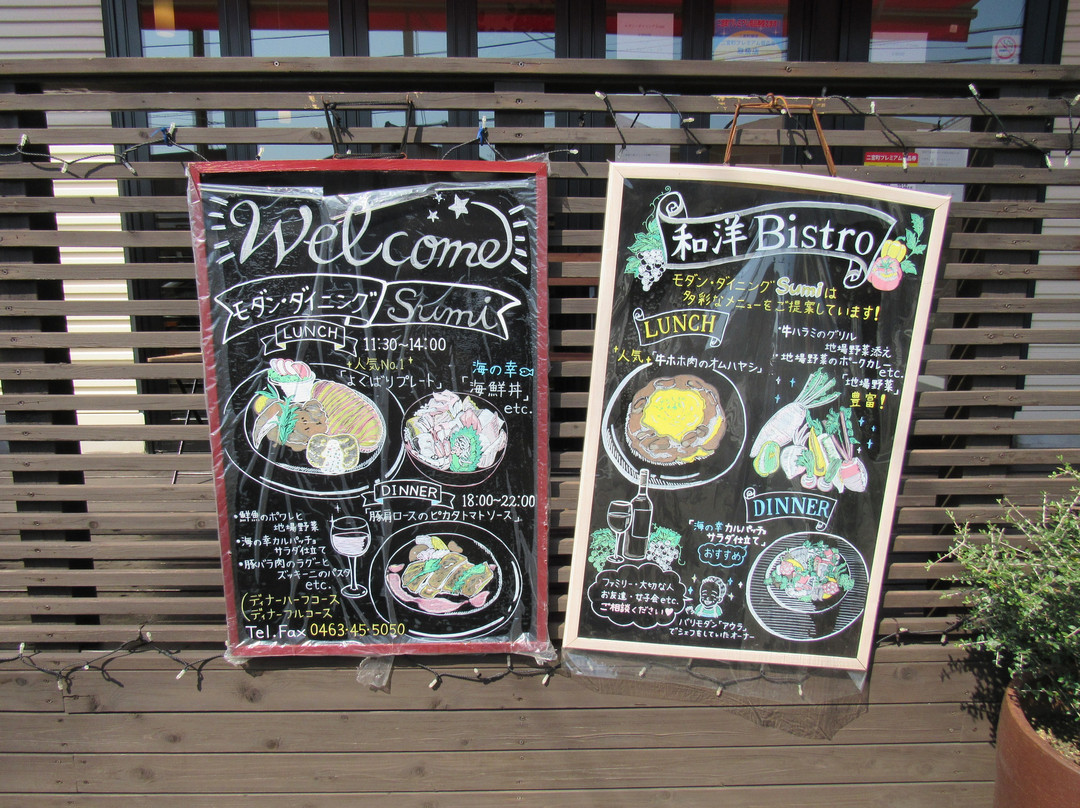 Welcome
モダン・ダイニング Sumi
LUNCH
11:30~14:00
人気No.1
「よくばりプレート」
海の幸
「海鮮丼」
etc.
DINNER
18:00~22:00
「豚肩ロースのピカタトマトソース」
・鮮魚のポワレと
地場野菜
・海の幸カルパッチョ
サラダ仕立て
・豚バラ肉のラグーと
ズッキーニのパスタ
etc.
(ディナーハーフコース
(ディナーフルコース
Tel.Fax 0463-45-5050
和洋 Bistro
モダン・ダイニングSumiは
多彩なメニューをご提案しています!
LUNCH
人気
「牛ホホ肉のオムハヤシ」
・牛ハラミのグリル
地場野菜添え
・地場野菜のポークカレー
etc.
「地場野菜」
豊富!
DINNER
「海の幸カルパッチョ
サラダ仕立て」
おすすめ
ファミリー・大切な人
お友達・女子会etc.
ご相談ください
パリモダン"アウラ"
でシェフをしていたオーナー
二宮町プレミアム商品券